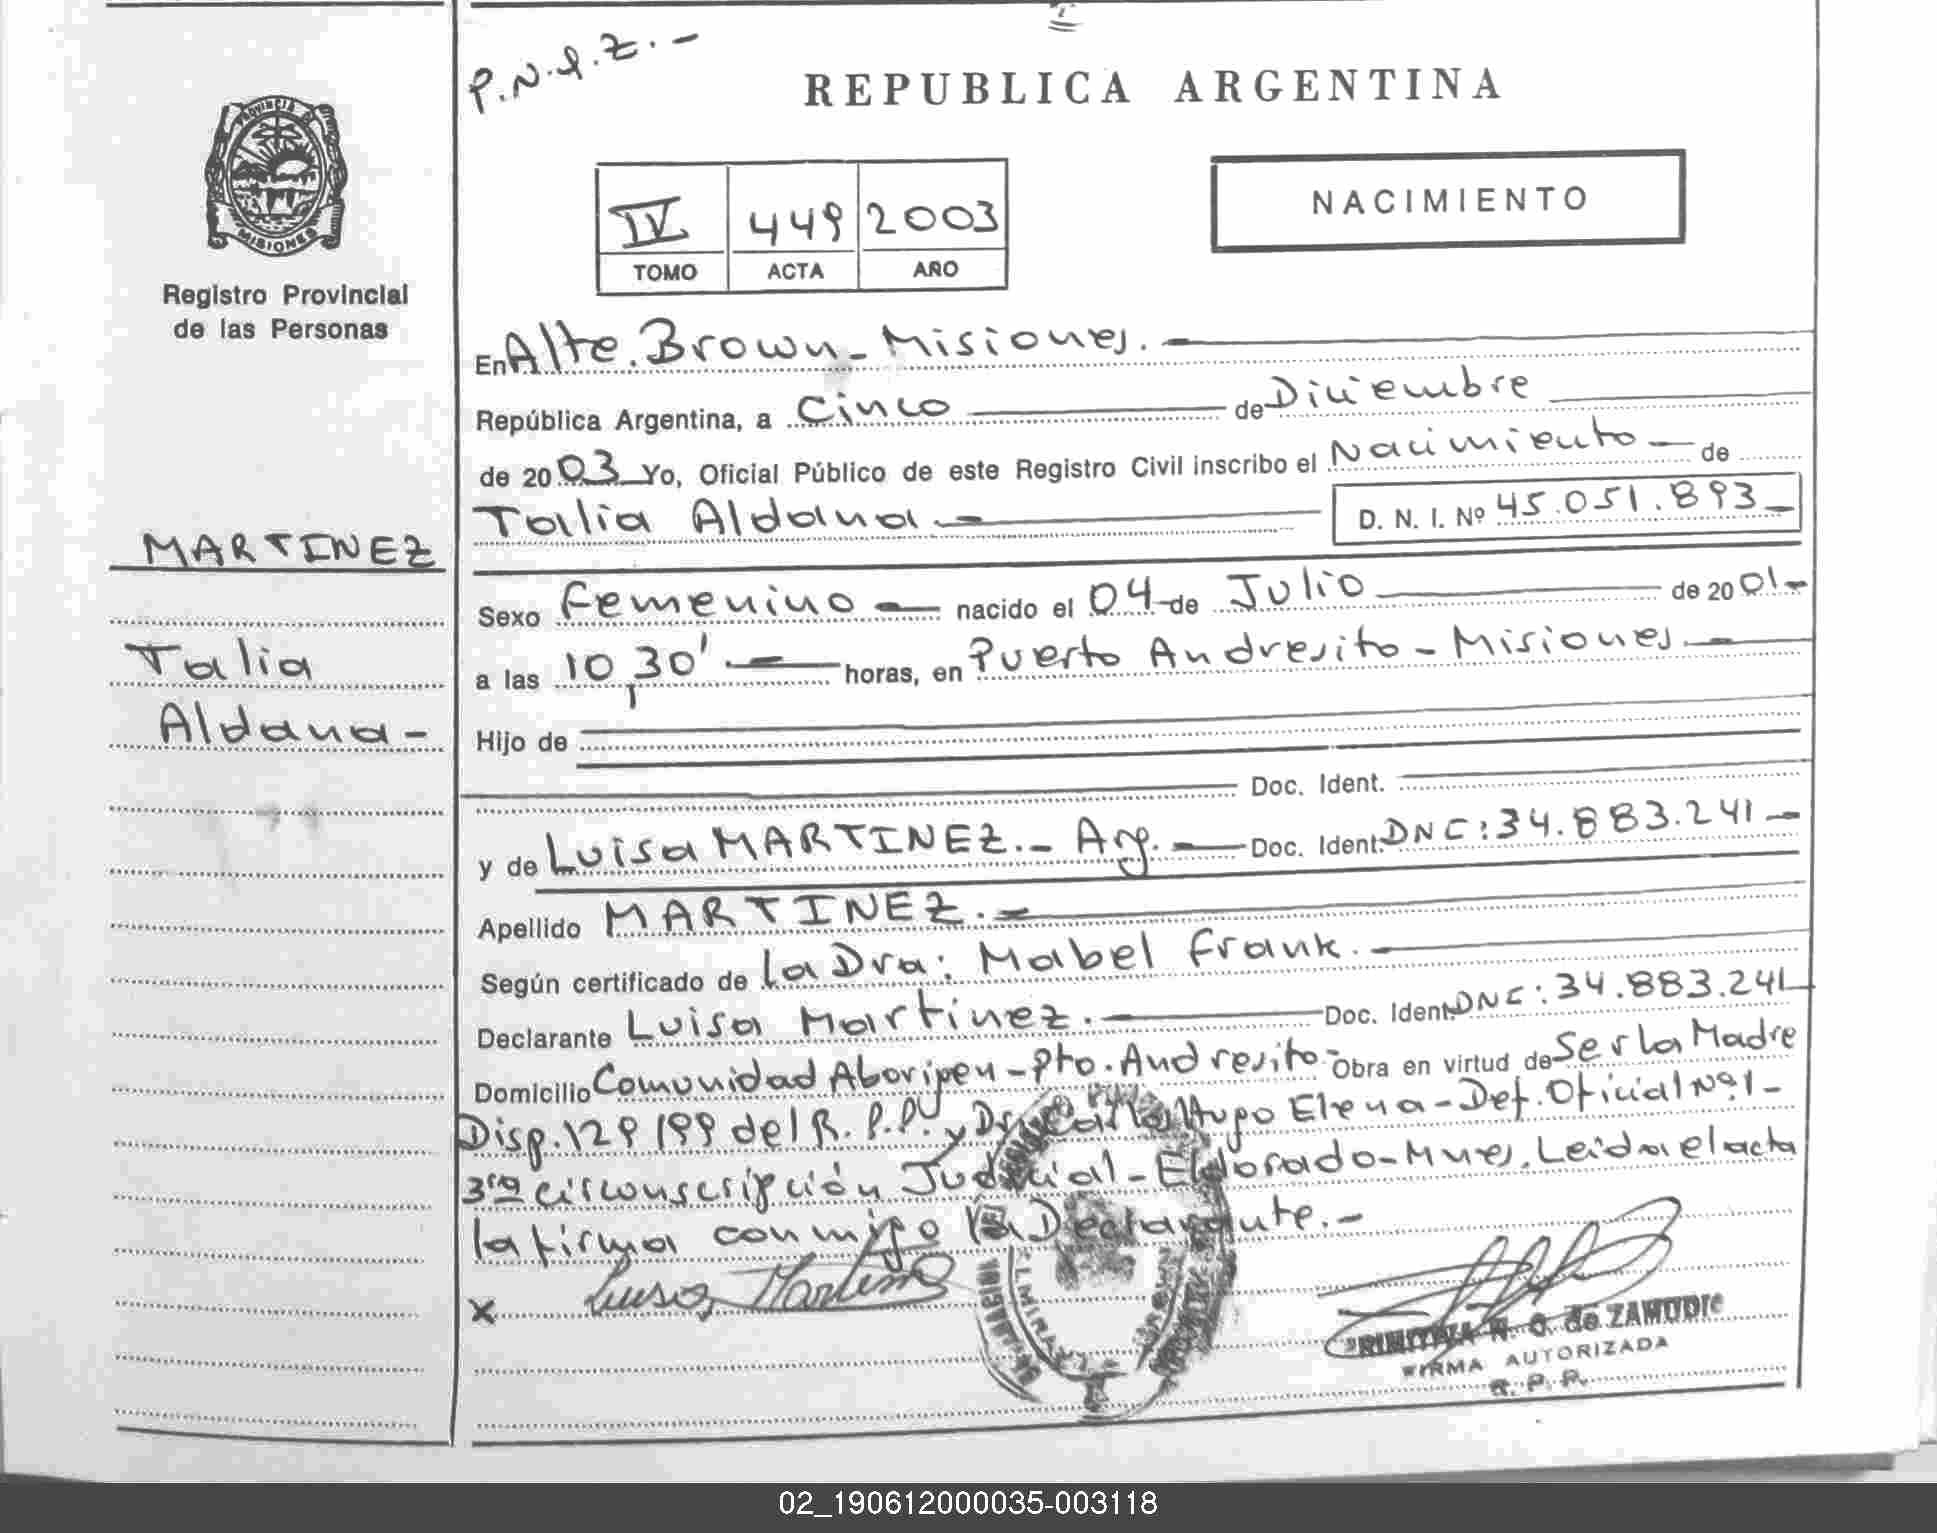 P.N.I.Z.-
REPUBLICA ARGENTINA
PROVINCIA DE
MISIONES
Registro Provincial
de las Personas
IV 449 2003
TOMO ACTA AÑO
NACIMIENTO
En Alte. Brown - Misiones.-
República Argentina, a Cinco de Diciembre
de 2003 Yo, Oficial Público de este Registro Civil inscribo el Nacimiento - de
Talia Aldana - D. N. I. Nº 45.051.893-
MARTINEZ
Talia
Aldana-
Sexo Femenino - nacido el 04 de Julio de 2001-
a las 10,30' - horas, en Puerto Andresito - Misiones -
Hijo de
Doc. Ident.
y de Luisa MARTINEZ.- Arg. - Doc. Ident. DNI: 34.883.241-
Apellido MARTINEZ.-
Según certificado de la Dra: Mabel Frank.-
Declarante Luisa Martinez.- Doc. Ident. DNI: 34.883.241
Domicilio Comunidad Aborigen - Pto. Andresito - Obra en virtud de Ser la Madre
Disp. 129/99 del R.P.P. y Dr. Carlos Hugo Elena - Def. Oficial Nº 1 -
3ra circunscripción Judicial - Eldorado - Mnes. Leida el acta
la firma conmigo la Declarante.-
x Luisa Martinez
N. G. de ZAMUDIO
FIRMA AUTORIZADA
R. P. P.
02_190612000035-003118